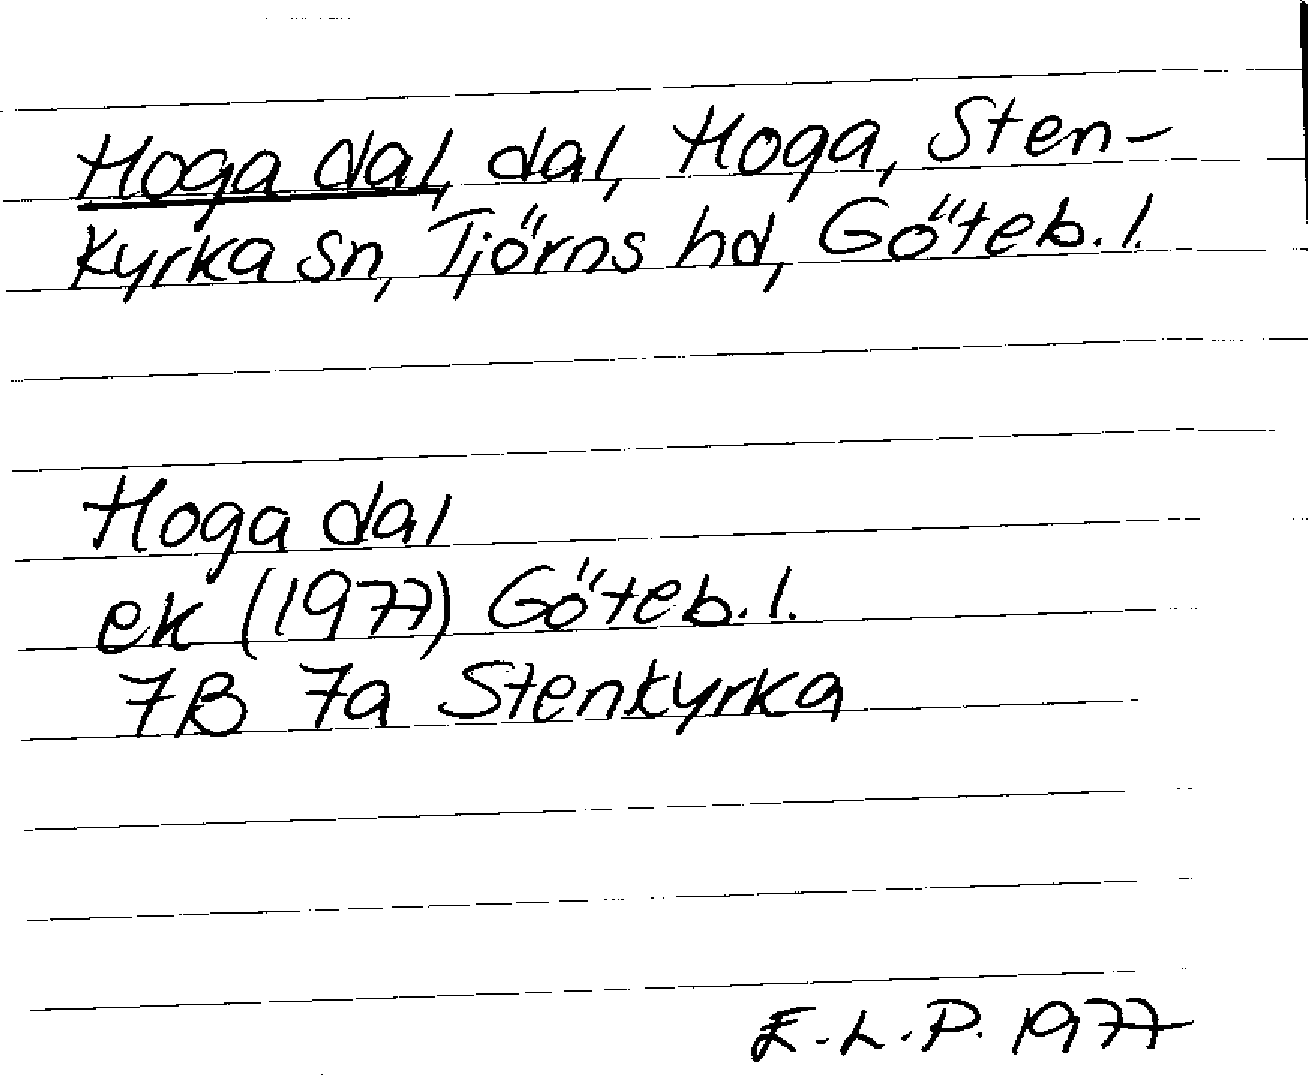 Hoga dal, dal, Hoga, Sten-
kyrka sn, Tjörns hd, Göteb. l.
Hoga dal
ek (1977) Göteb. l.
7B 7a Stenkyrka
E.L.P. 1977